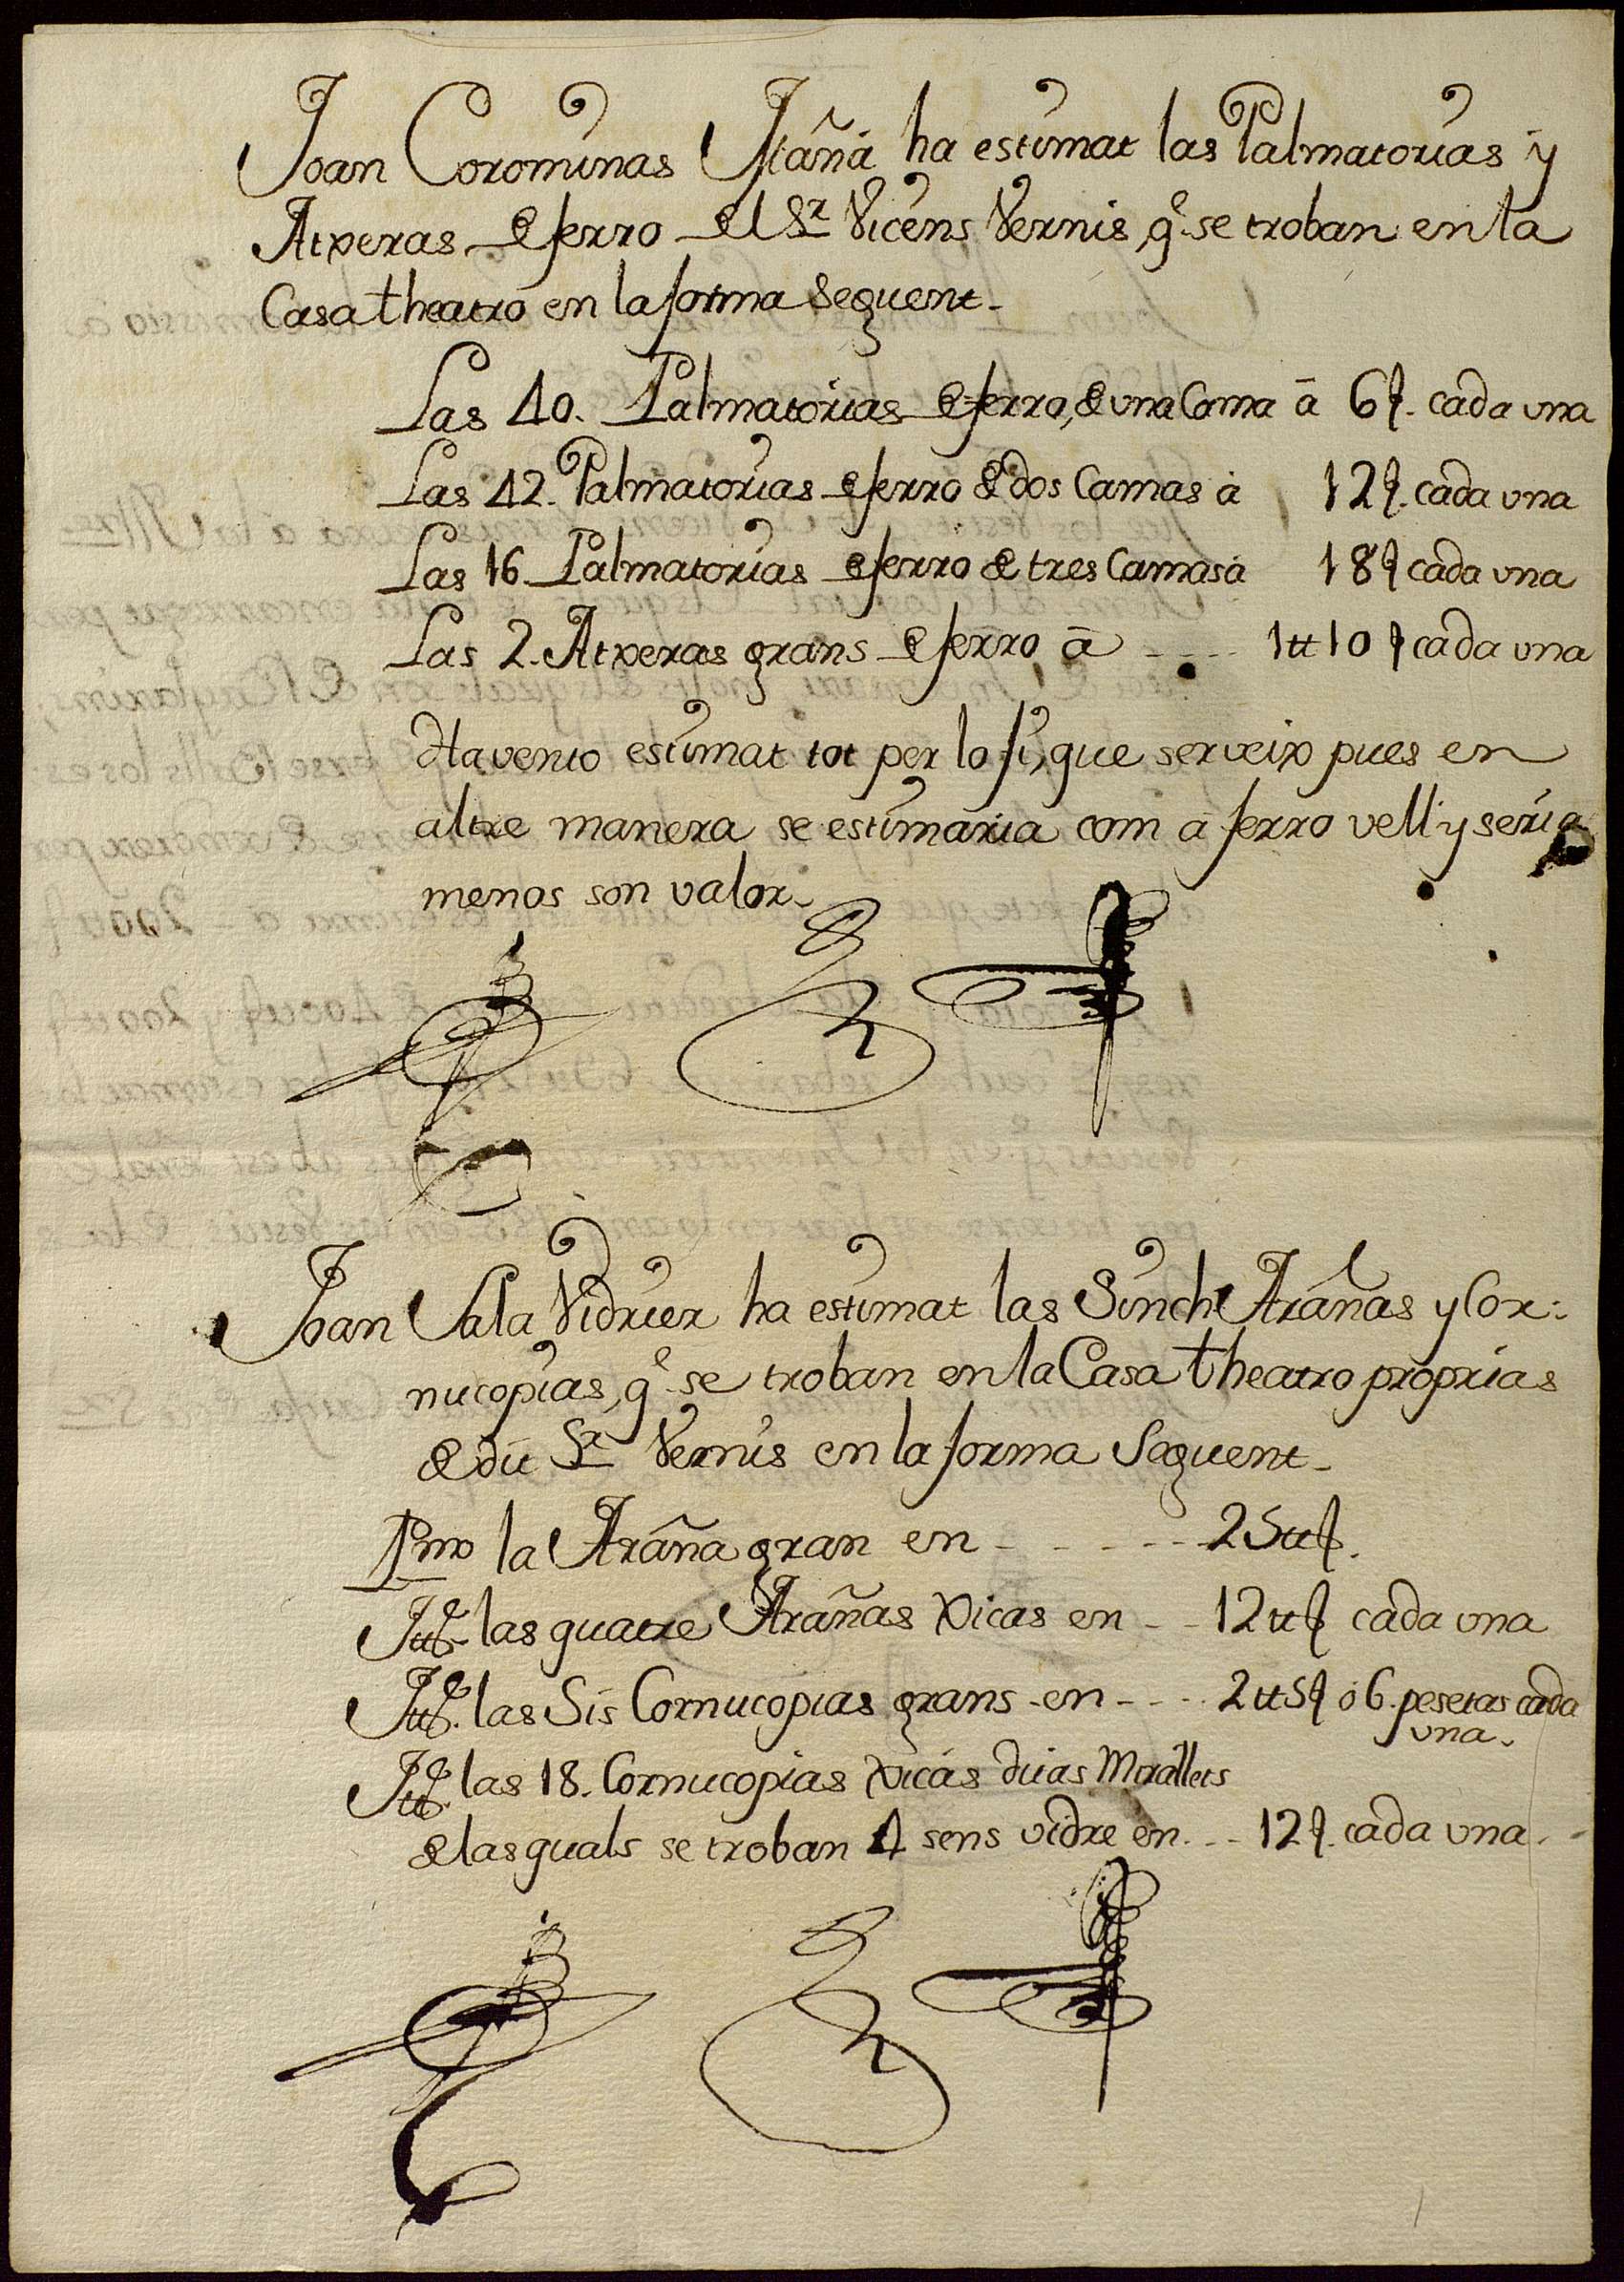 Joan Corominas Mañá ha estimat las Palmatorias y
Atxeras de ferro del Sr. Vicens Vernis, q.e se troban en la
Casa theatro en la forma seguent.
Las 40. Palmatorias de ferro, de una Cama á 6 ß. cada una
Las 42. Palmatorias de ferro de dos Camas á 12 ß. cada una
Las 16. Palmatorias de ferro de tres Camas á 18 ß cada una
Las 2. Atxeras grans de ferro á ---- 1 tt 10 ß cada una
Havento estimat tot per lo fi, que serveix pues en
altre manera se estimaria com á ferro vell y seria
menos son valor.
Joan Sala Vidrier ha estimat las Sinch Arañas y Cor:
nucopias, q.e se troban en la Casa theatro proprias
de dit Sr. Vernis en la forma Seguent.
Pmo la Araña gran en ----- 25 tt ß.
Itt. las quatre Arañas xicas en -- 12 tt ß cada una
Itt. las Sis Cornucopias grans en ---- 2 tt 5 ß ó 6. pesetas cada
una.
Itt. las 18. Cornucopias xicas ditas Mirallets
de las quals se troban 4 sens vidre en --- 12 ß. cada una.